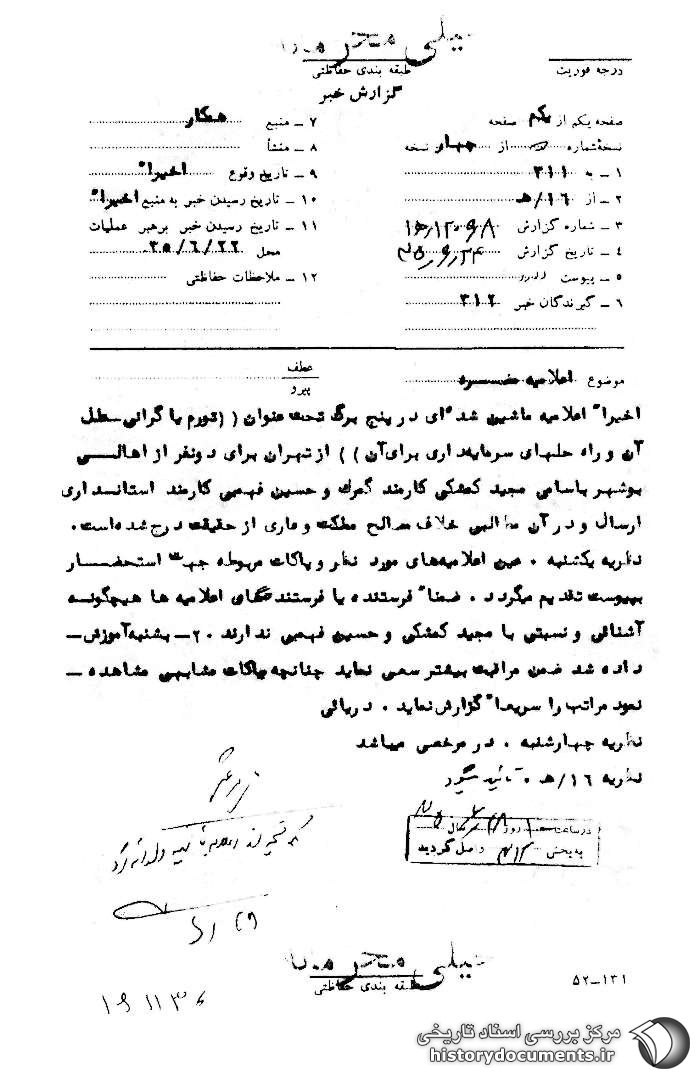 خیلی محرمانه
طبقه بندی حفاظتی
درجه فوریت
گزارش خبر
صفحه یکم از یکم صفحه
نسخه شماره از چهار نسخه
۱ ـ به ۳۱۱
۲ ـ از ۱۶/هـ
۳ ـ شماره گزارش
۴ ـ تاریخ گزارش
۵ ـ پیوست دارد
۶ ـ گیرندگان خبر ۳۱۲
۷ ـ منبع همکار
۸ ـ منشأ
۹ ـ تاریخ وقوع اخیرا"
۱۰ ـ تاریخ رسیدن خبر به منبع اخیرا"
۱۱ ـ تاریخ رسیدن خبر برهبر عملیات
محل ۳۵/۶/۲۲
۱۲ ـ ملاحظات حفاظتی
موضوع اعلامیه مضره
عطف
پیرو
اخیرا" اعلامیه ماشین شده ای در پنج برگ تحت عنوان ( (تورم یا گرانی ـ علل
آن و راه حلهای سرمایه‌داری برای‌آن ) ) از تهران برای دونفر از اهالی
بوشهر باسامی مجید کمشکی کارمند گمرك و حسین فهیمی کارمند استانداری
ارسال و در آن مطالبی خلاف مصالح مملکت و عاری از حقیقت درج شده‌است .
نظریه یکشنبه . عین اعلامیه‌های مورد نظر و پاکات مربوطه جهت استحضار
بپیوست تقدیم میگردد . ضمنا" فرستنده یا فرستنده‌گان اعلامیه ها هیچگونه
آشنائی و نسبتی با مجید کمشکی و حسین فهیمی ندارند . ۲ـ بشنبه آموزش ـ
داده شد ضمن مراقبت بیشتر سعی نماید چنانچه پاکات مشابهی مشاهده ـ
نمود مراتب را سریعا" گزارش نماید . دریائی
نظریه چهارشنبه . در مرخصی میباشد
نظریه ۱۶/هـ . تائید میگردد
در ساعت روز سال
به بخش ۳۱۲ واصل گردید
خیلی محرمانه
طبقه بندی حفاظتی
۵۲ـ۱۳۱
مرکز بررسی اسناد تاریخی
historydocuments.ir